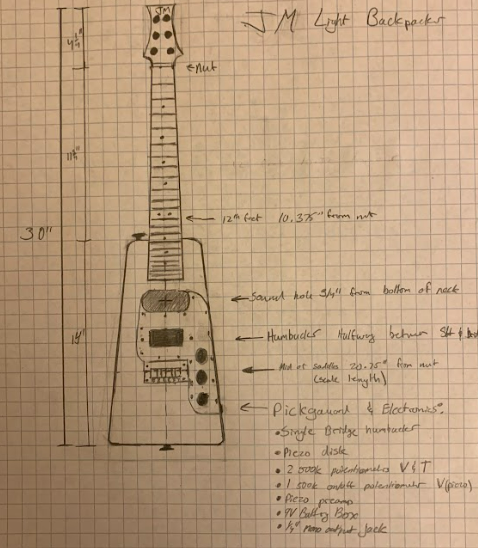 JM Light Backpacker
JM
4 1/4"
← Nut
11 3/4"
12th fret 10.375" from nut
30"
Sound hole 3/4" from bottom of neck
Humbucker Halfway between SH &
14"
Mid of saddle 20.75" from nut
(scale length)
Pickgaurd & Electronics:
• Single Bridge humbucker
• Piezo disk
• 2 500k potentiometers V & T
• 1 500k on/off potentiometer V(piezo)
• Piezo preamp
• 9V Battery Box
• 1/4" mono output Jack